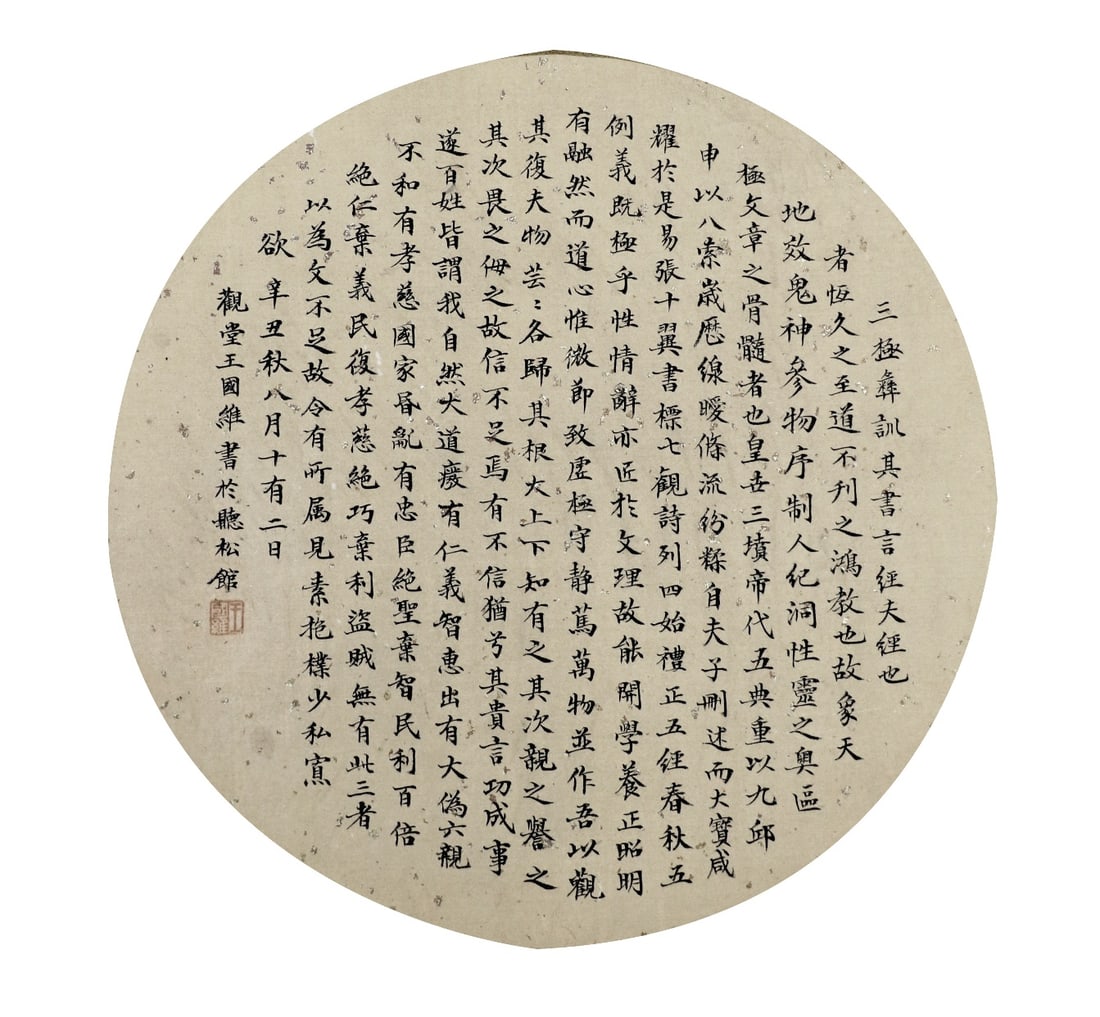 三極彝訓其書言經夫經也
者恆久之至道不刊之鴻教也故象天
地效鬼神參物序制人紀洞性靈之奧區
極文章之骨髓者也皇世三墳帝代五典重以九邱
申以八索歲歷綿曖條流紛糅自夫子刪述而大寶咸
耀於是易張十翼書標七觀詩列四始禮正五經春秋五
例義既極乎性情辭亦匠於文理故能開學養正昭明
有融然而道心惟微節致虛極守靜篤萬物並作吾以觀
其復夫物芸〻各歸其根大上下知有之其次親之譽之
其次畏之侮之故信不足焉有不信猶兮其貴言功成事
遂百姓皆謂我自然大道廢有仁義智惠出有大偽六親
不和有孝慈國家昬亂有忠臣絕聖棄智民利百倍
絕仁棄義民復孝慈絕巧棄利盜賊無有此三者
以為文不足故令有所属見素抱樸少私寡
欲 辛丑秋八月十有二日
觀堂王國維書於聽松館
王國維